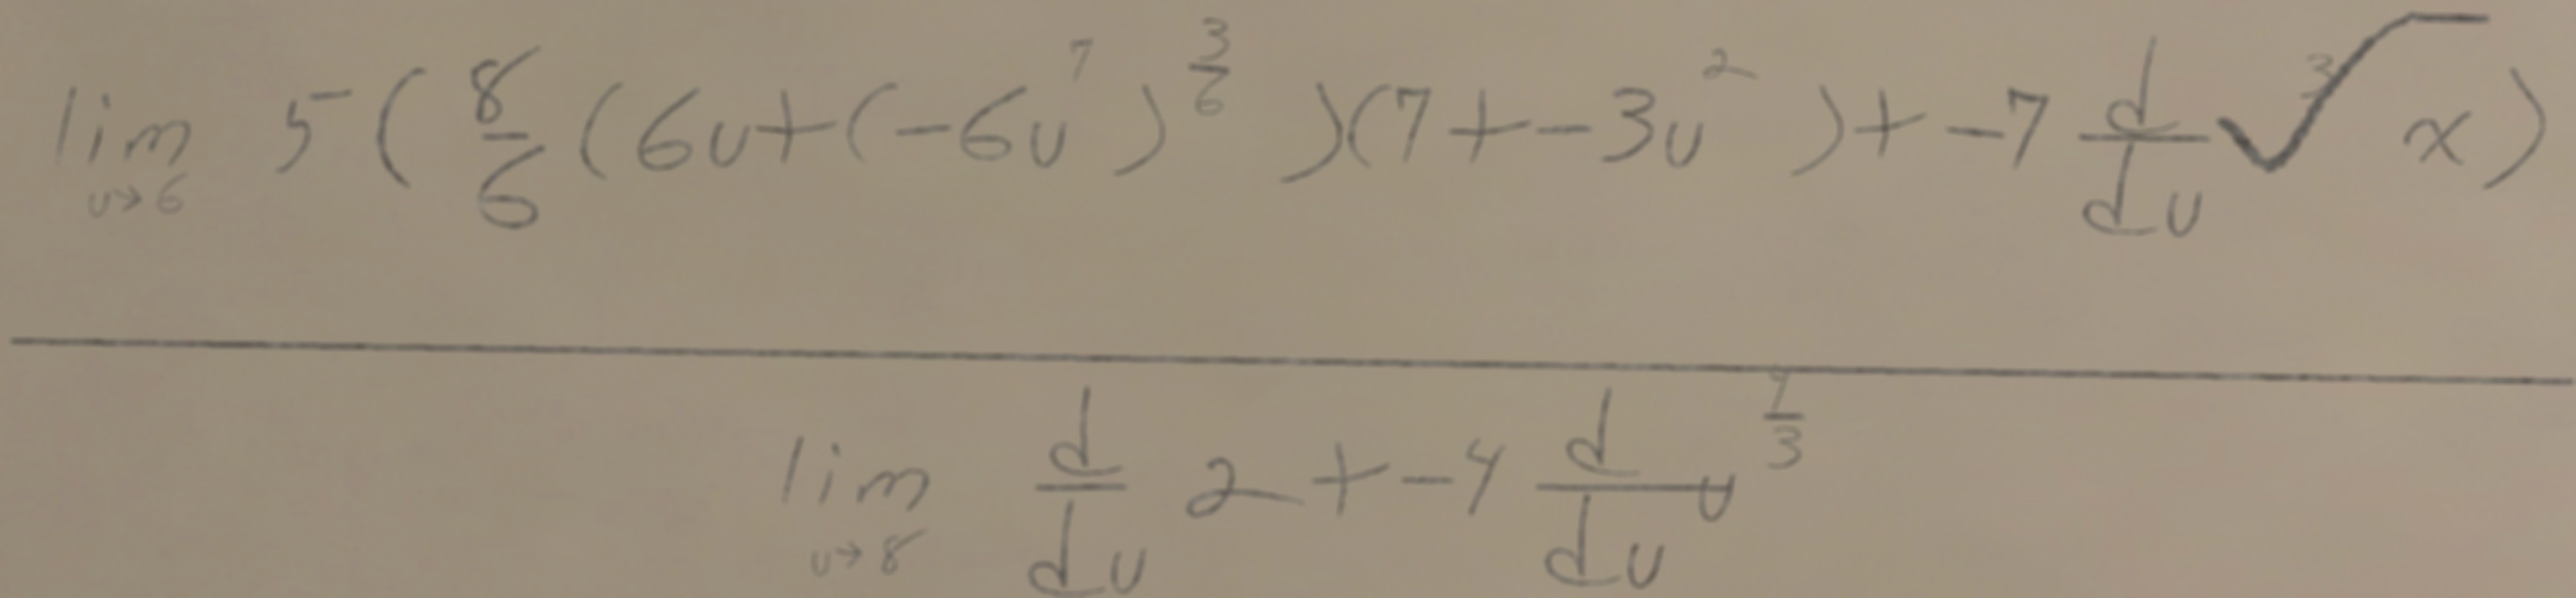 lim u→6 5(8/6(6u+(-6u^7)^(3/6))(7+-3u^2)+-7 d/du ∛x)
lim u→8 d/du 2+-4 d/du u^(4/3)